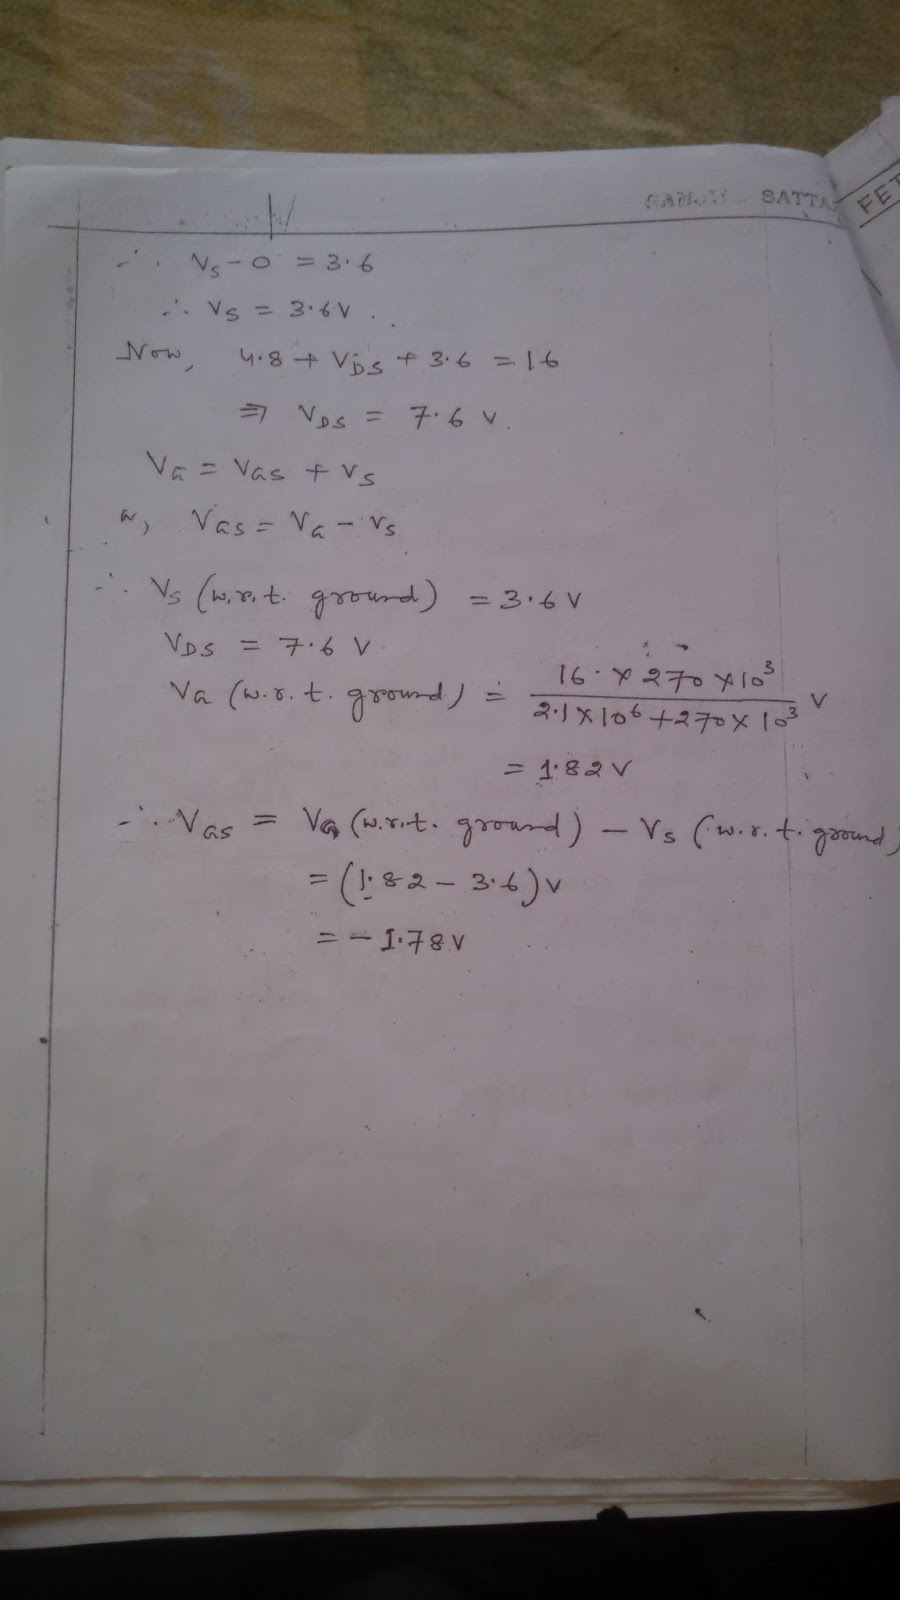 SATTA
FET
∴ V_S - 0 = 3.6
∴ V_S = 3.6 V.
Now, 4.8 + V_DS + 3.6 = 16
⇒ V_DS = 7.6 V.
V_G = V_GS + V_S
or, V_GS = V_G - V_S
∴ V_S (w.r.t. ground) = 3.6 V
V_DS = 7.6 V.
V_G (w.r.t. ground) = 16 × 270 × 10^3 / 2.1 × 10^6 + 270 × 10^3 V
= 1.82 V
∴ V_GS = V_G (w.r.t. ground) - V_S (w.r.t. ground)
= (1.82 - 3.6) V
= - 1.78 V